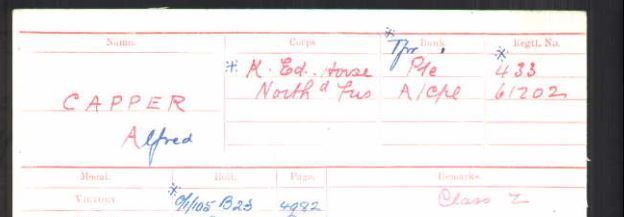 Name. Corps Rank Regtl. No.
* Tpr *
* K. Ed. Horse Pte 433
North'd Fus A/Cpl 61202
CAPPER
Alfred
Medal. Roll. Page. Remarks.
VICTORY * O/1/105 B23 4982 Class Z